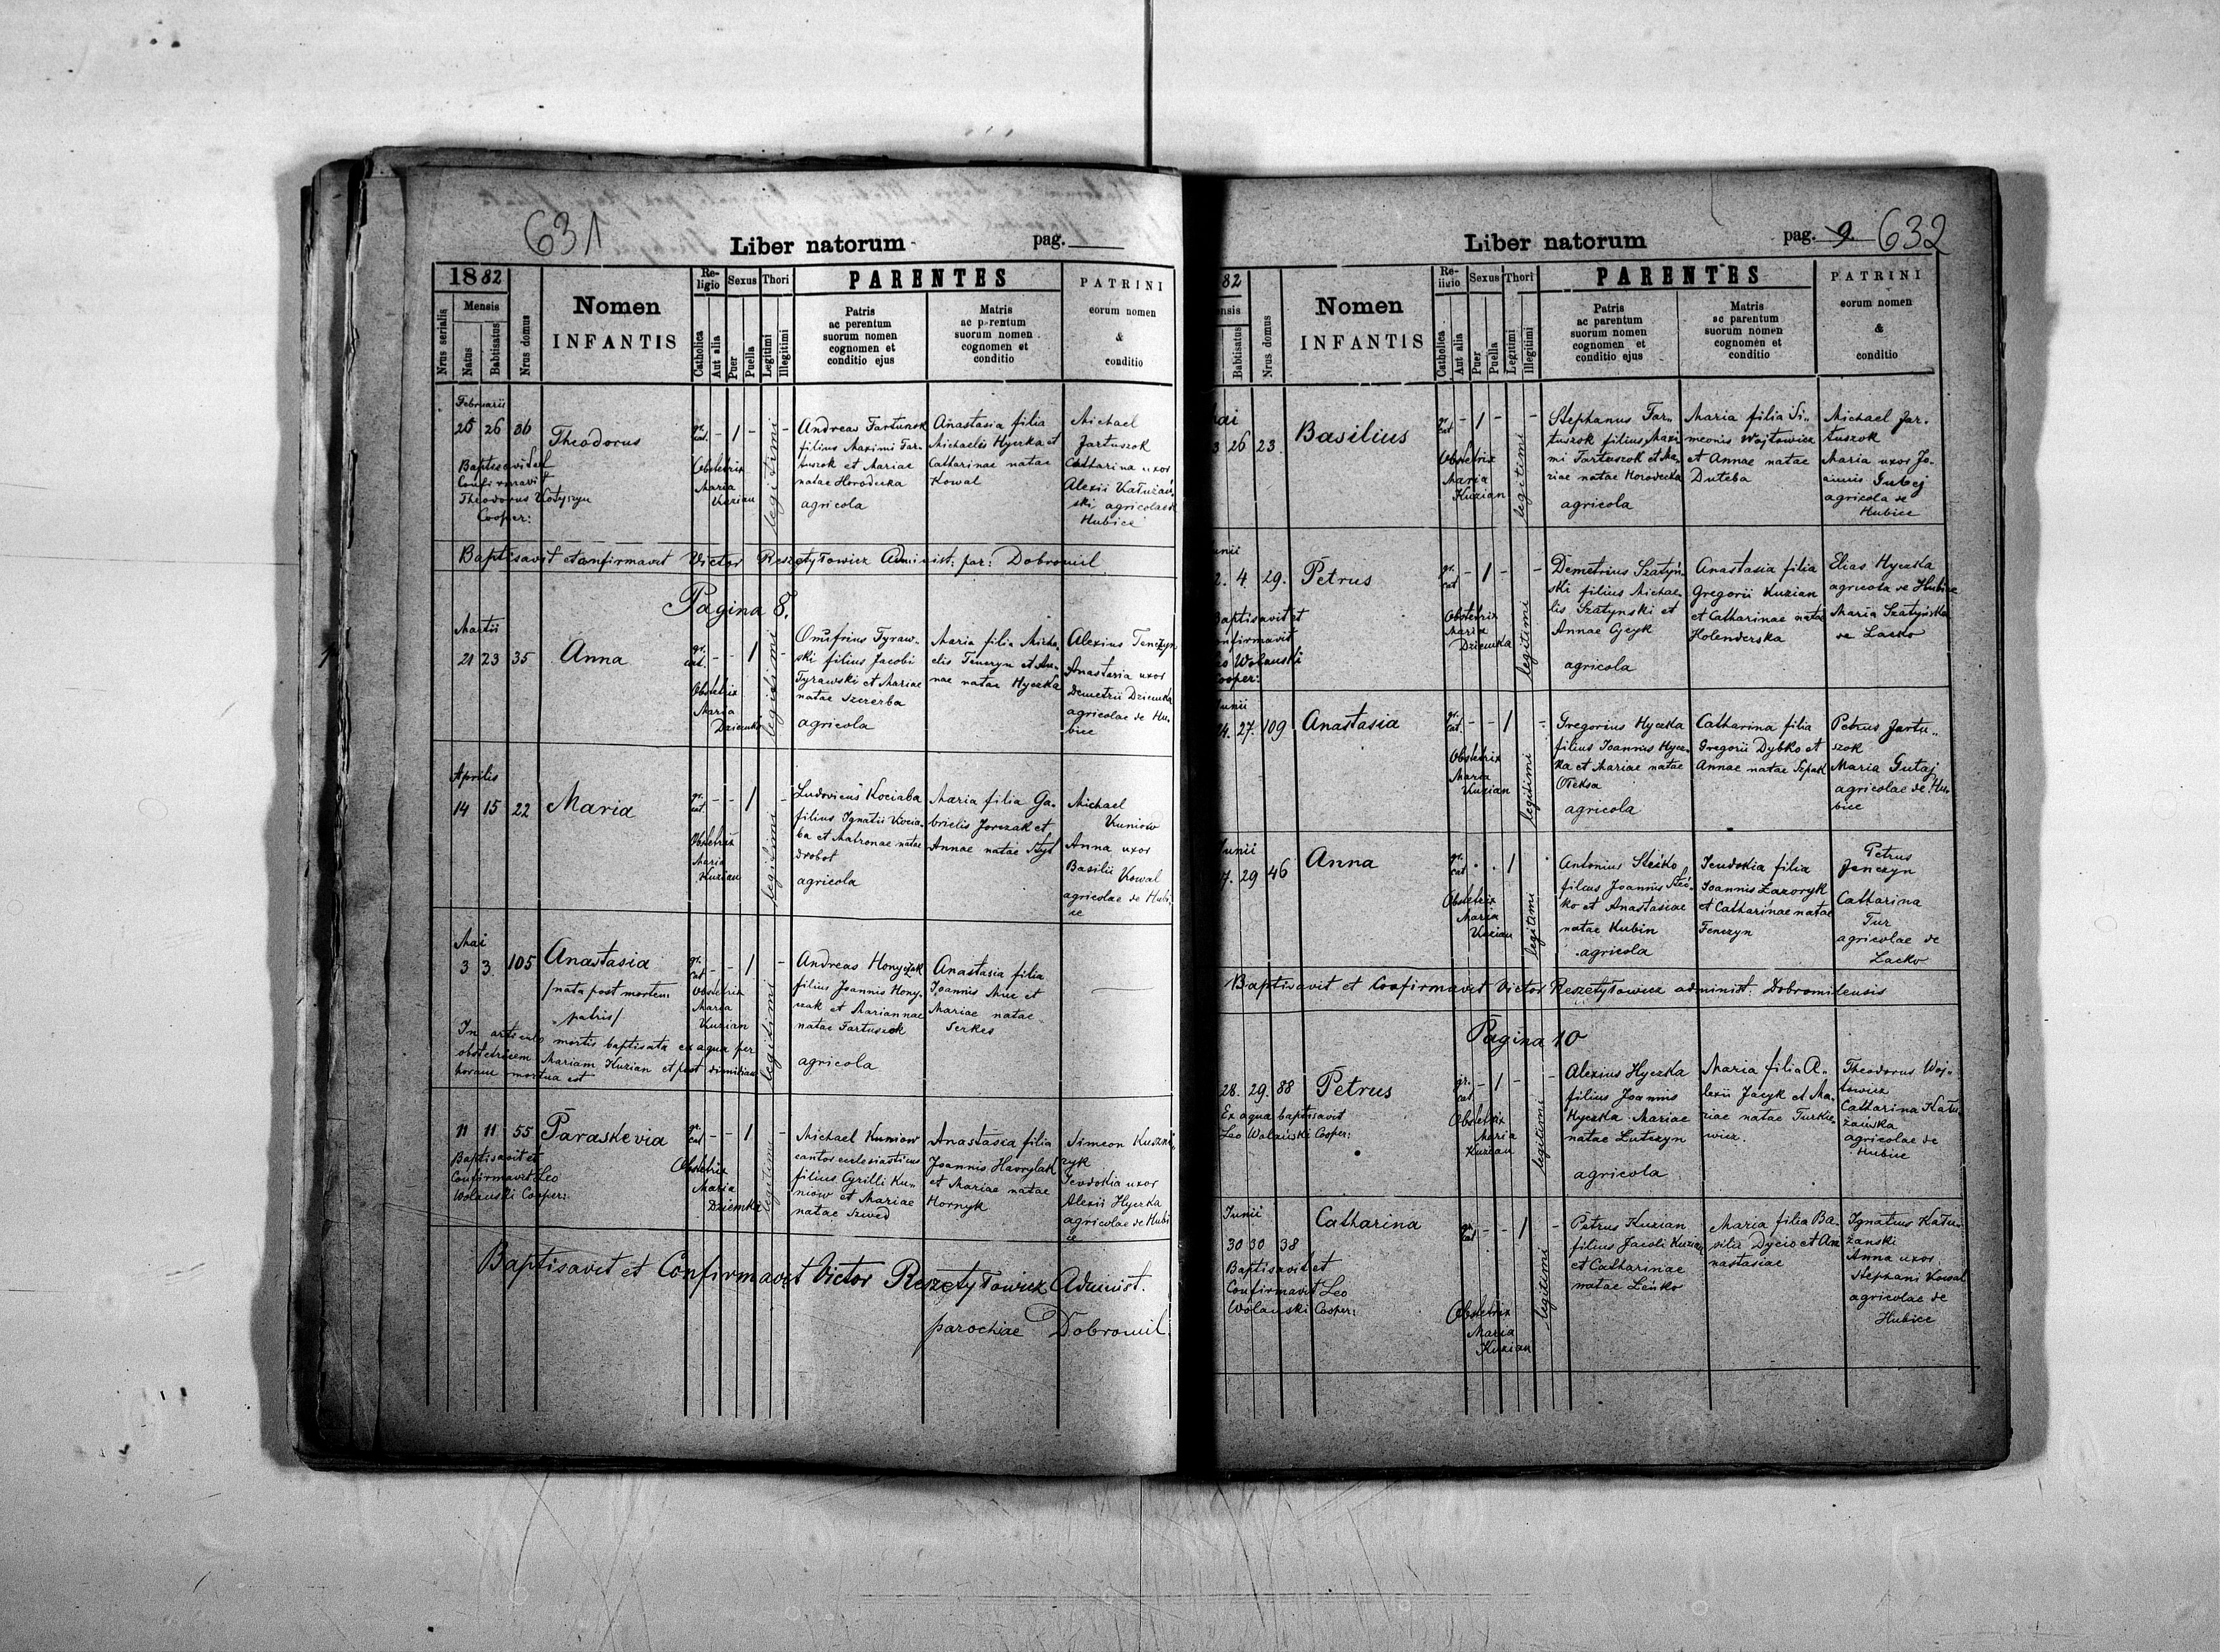 631
Liber natorum
pag.
1882
Nrus serialis
Mensis
Natus
Babtisatus
Nrus domus
Nomen
INFANTIS
Re-
ligio
Catholica
Aut alia
Sexus
Puer
Puella
Thori
Legitimi
Illegitimi
PARENTES
Patris
ac perentum
suorum nomen
cognomen et
conditio ejus
Matris
ac p-rentum
suorum nomen
cognomen et
conditio
PATRINI
eorum nomen
&
conditio
Februarii
25 26 86
Theodorus
gr. cat. - 1 -
legitimi
Baptisavit et
Confirmavit
Theodorus
Cooper:
Obstetrix
Maria
Kuzian
Andreas Fartuszok
filius Maximi Far-
tuszok et Mariae
natae Horodecka
agricola
Anastasia filia
Michaelis Hyczka et
Catharinae natae
Kowal
Michael
Fartuszok
Catharina uxor
Alexii Kałużań-
ski agricolae de
Hubice
Baptisavit et confirmavit Victor Reszetyłowicz Administ: par: Dobromil
Pagina 8.
Martii
21 23 35
Anna
gr. cat. - - 1 -
legitimi
Obstetrix
Maria
Dziemka
Onufrius Tyraw-
ski filius Jacobi
Tyrawski et Mariae
natae Szczerba
agricola
Maria filia Micha-
elis Fenczyn et An-
nae natae Hyczka
Alexius Fenczyn
Anastasia uxor
Demetrii Dziemka
agricolae de Hu-
bice
Aprilis
14 15 22
Maria
gr. cat. - - 1 -
legitimi
Obstetrix
Maria
Kuzian
Ludovicus Kociaba
filius Ignatii Kocia-
ba et Matronae natae
Drobot
agricola
Maria filia Ga-
brielis Jorczak et
Annae natae Styś
Michael
Kuniow
Anna uxor
Basilii Kowal
agricolae de Hubi-
ce
Mai
3 3 105
Anastasia
/nata post mortem
patris/
gr. cat. - - 1 -
legitimi
Obstetrix
Maria
Kuzian
In articulo mortis baptisata ex aqua per
obstetricem Mariam Kuzian et post dimidiam
horam mortua est
Andreas Honyczak
filius Joannis Hony-
czak et Mariannae
natae Fartuszok
agricola
Anastasia filia
Joannis Muc et
Mariae natae
Serkes
11 11 55
Paraskevia
gr. cat. - - 1 -
legitimi
Baptisavit et
Confirmavit Leo
Wolański Cooper:
Obstetrix
Maria
Dziemka
Michael Kuniow
cantor ecclesiasticus
filius Cyrilli Ku-
niow et Mariae
natae Szwed
Anastasia filia
Joannis Hawrylak
et Mariae natae
Hornyk
Simeon Kuszni-
ryk
Jevdokia uxor
Alexii Hyczka
agricolae de Hubi
ce
Baptisavit et Confirmavit Victor Reszetyłowicz Administ.
parochiae Dobromil.
Liber natorum
pag. 9. 632
82
ensis
Babtisatus
Nrus domus
Nomen
INFANTIS
Re-
ligio
Catholica
Aut alia
Sexus
Puer
Puella
Thori
Legitimi
Illegitimi
PARENTES
Patris
ac parentum
suorum nomen
cognomen et
conditio ejus
Matris
ac parentum
suorum nomen
cognomen et
conditio
PATRINI
eorum nomen
&
conditio
ai
3 26 23.
Basilius
gr. cat - 1 - -
legitimi
Obstetrix
Maria
Kuzian
Stephanus Far-
tuszok filius Maxi
mi Fartuszok et Ma-
riae natae Horodecka
agricola
Maria filia Si-
meonis Wojtowicz
et Annae natae
Duteba
Michael Far-
tuszok
Maria uxor Jo-
annis Gutej
agricola de
Hubice
unii
2. 4 29.
Petrus
gr. cat - 1 - -
legitimi
Baptisavit et
onfirmavit
Leo Wolanski
Cooper:
Obstetrix
Maria
Dziemka
Demetrius Szatyń-
ski filius Michae-
lis Szatynski et
Annae Gyzyk
agricola
Anastasia filia
Gregorii Kuzian
et Catharinae natae
Holenderska
Elias Hyczka
agricola de Hubice
Maria Szatyńska
de Lacko
Junii
24. 27. 109
Anastasia
gr. cat. - - 1 -
legitimi
Obstetrix
Maria
Kuzian
Gregorius Hyczka
filius Joannis Hycz-
ka et Mariae natae
Oleksa
agricola
Catharina filia
Gregorii Dybko et
Annae natae Sepak
Petrus Fartu-
szok
Maria Gutaj
agricolae de Hu-
bice
Junii
7. 29 46
Anna
gr. cat. . . 1 .
legitimi
Obstetrix
Maria
Kuzian
Antonius Stećko
filius Joannis Steć-
ko et Anastasiae
natae Kubin
agricola
Jeudokia filia
Joannis Łazoryk
et Catharinae natae
Fenczyn
Petrus
Fenczyn
Catharina
Tur
agricolae de
Lacko
Baptisavit et Confirmavit Victor Reszetyłowicz administ: Dobromilensis
Pagina 10
28. 29. 88
Petrus
gr. cat. - 1 - -
legitimi
Ex aqua baptisavit
Leo Wolański Cooper:
Obstetrix
Maria
Kuzian
Alexius Hyczka
filius Joannis
Hyczka Mariae
natae Lutczyn
agricola
Maria filia A-
lexii Jacyk et Ma-
riae natae Turkie-
wicz.
Theodorus Woj-
towicz
Catharina Kału-
żańska
agricolae de
Hubice
Junii
30 30 38
Catharina
gr. cat - - 1 -
legitimi
Baptisavit et
Confirmavit Leo
Wolanski Cooper:
Obstetrix
Maria
Kuzian
Petrus Kuzian
filius Jacobi Kuzian
et Catharinae
natae Leńko
Maria filia Ba-
silii Dycio et Ana
nastasiae
Ignatius Kału-
żanski
Anna uxor
Stephani Kowal
agricolae de
Hubice